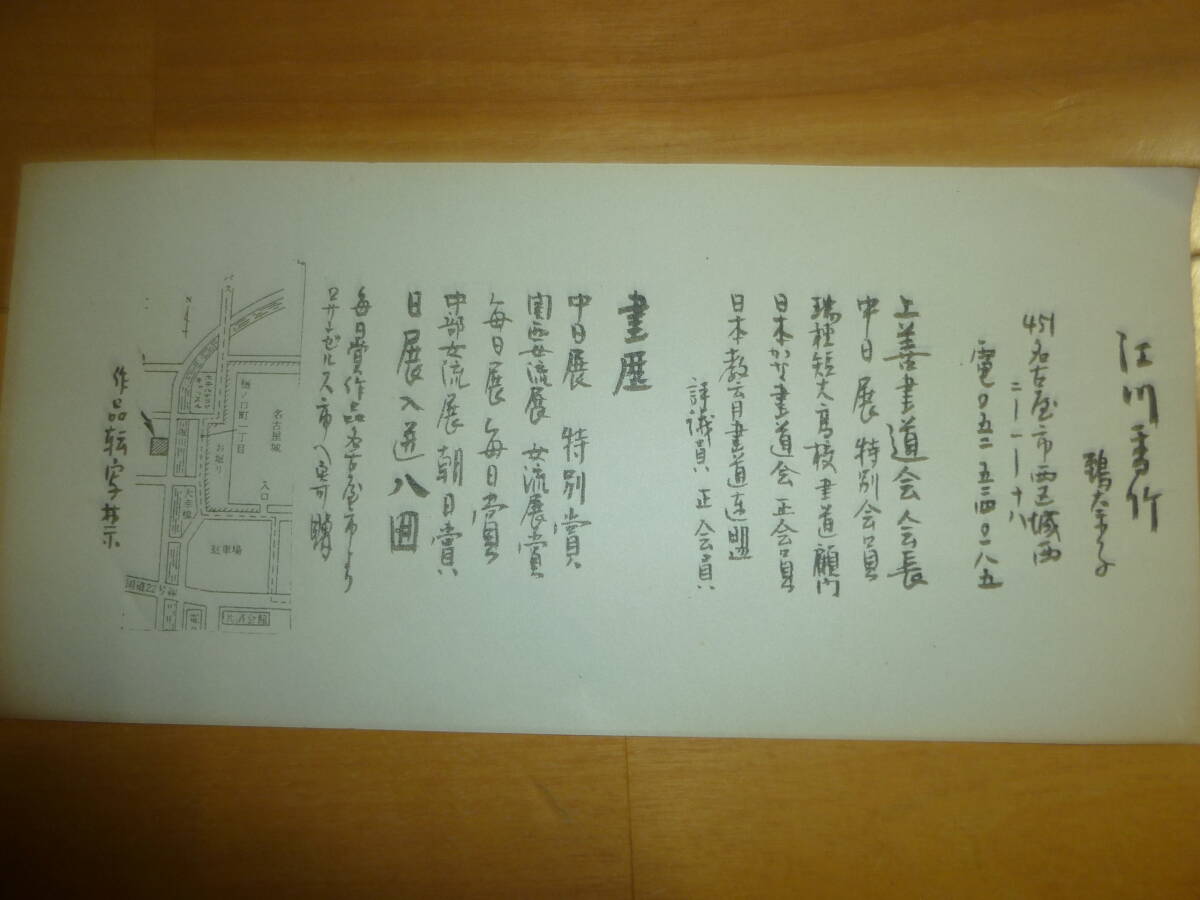 江川香竹
鵜奈子
451名古屋市西区城西
二ー一ー十八
電〇五二 五三一四〇二八五
上善書道会会長
中日展 特別会員
瑞穂短大高校書道顧問
日本かな書道会 正会員
日本教育書道連盟
評議員 正会員
書歴
中日展 特別賞
関西女流展 女流展賞
毎日展 毎日賞
中部女流展 朝日賞
日展入選八回
毎日賞作品名古屋市より
ロサンゼルス市へ寄贈
バス
N
名古屋城
樋ノ口町一丁目
お堀り
入口
大幸橋
駐車場
国道22号線
作品転字井示